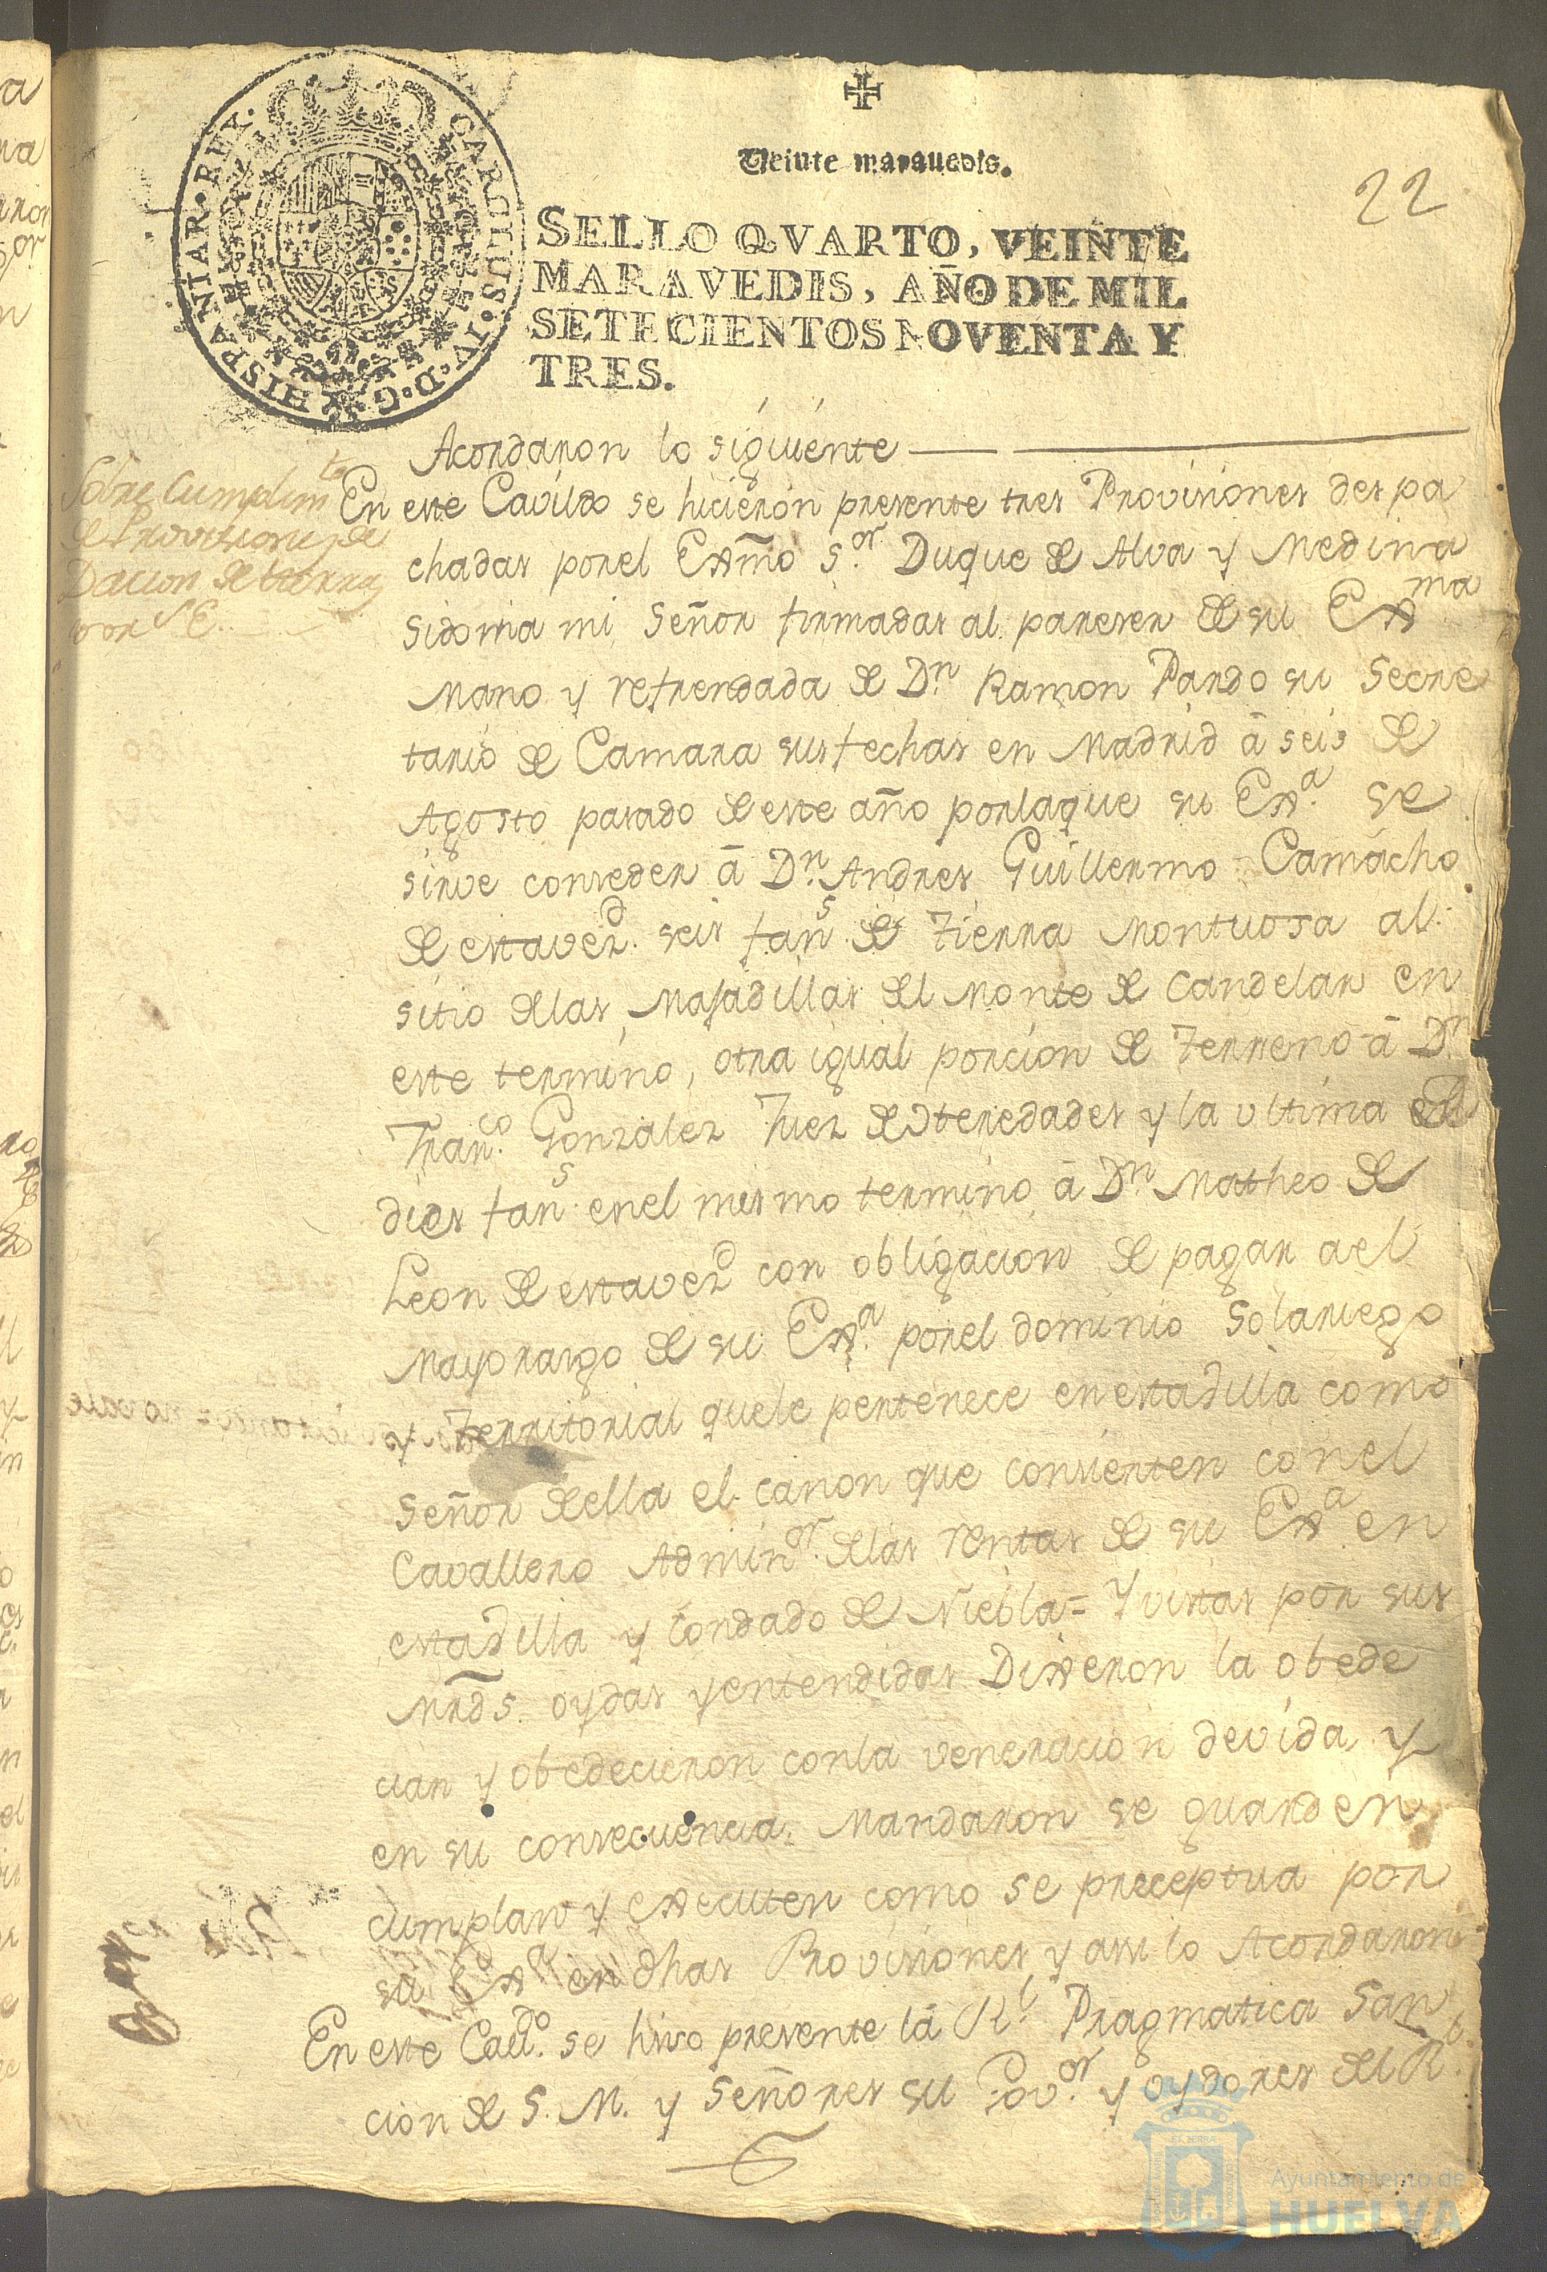 CAROLUS·IV·D·G·HISPANIAR·REX·
Veinte maravedis.
22
SELLO QVARTO, VEINTE
MARAVEDIS, AÑO DE MIL
SETECIENTOS NOVENTA Y
TRES.
Acordaron lo siguiente
Sobre Cumplim.to
de Provisiones de
Dacion de tierras
por S.E.
En este Cavildo se hicieron presente tres Provisiones despa
chadas por el Exmo S.or Duque de Alva y Medina
sidonia mi Señor firmadas al pareser de su Exma
Mano y refrendada de D.n Ramon Pardo su Secre
tario de Camara sus fechas en Madrid â seis de
Agosto pasado de este año porlaque su Ex.a se
sirve conseder â D.n Andres Guillermo Camácho
de estavez.d seis fan.s de Tierra Montuosa al
sitio delas Majadillas del Monte de Candelar en
este termino, otra igual porcion de Terreno â D.n
Fran.co Gonzalez Juez de Heredades y la ultima de
dies fan.s enel mismo termino â D.n Matheo de
Leon de estavez.d con obligacion de pagar a el
Mayorasgo de su Ex.a porel dominio Solariego
y Territorial quele pertenece en estadilla como
Señor deella el canon que consierten conel
Cavallero Admin.or delas rentas de su Ex.a en
estadilla y Condado de Niebla= Y vistas por sus
Mrds. oydas y entendidas Dixeron la obede
cian y obedecieron conla veneracion devida, y
en su consecuencia, Mandaron se guarden,
cumplan y executen como se preceptua por
su Ex.a en dhas Provisiones y assi lo Acordaron
En este Cav.do se hiso presente la R.l Pragmatica San
cion de S. M. y Señores su Gov.or y oydores del R.l
Ayuntamiento de
HUELVA